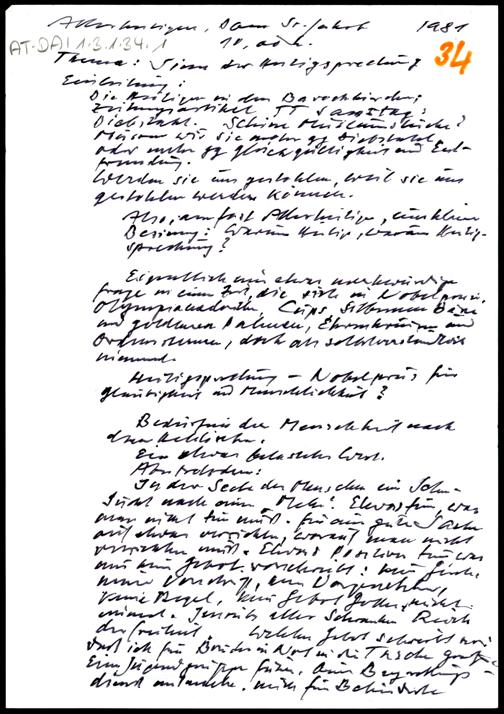 Allerheiligen, Dom St. Jakob 1981
AT-DAI 1.3.1.34.1
10,00 h. 34
Thema: Sinn der Heiligsprechung
Einleitung:
Die Heiligen in den Barockkirchen;
Zeitungsartikel TT Samstag:
Diebstahl. Schöne Museumsstücke?
Müssen wir sie mehr gg Diebstahl
oder mehr gg Gleichgültigkeit und Ent-
fremdung.
Werden sie uns gestohlen, weil sie uns
gestohlen werden können.
Also, am fort Allerheiligen, eine kleine
Besinnung: Warum heilig, warum Heilig-
sprechung?
Eigentlich eine etwas merkwürdige
Frage in einer Zeit, die sich in Nobelpreisen,
Cups, Silbernen
und goldenen und
doch als selbstverständlich
nimmt.
Heiligsprechung – Nobelpreis für
Gläubigkeit und Menschlichkeit?
Bedürfnis der Menschheit nach
dem
Ein etwas belastetes Wort.
Aber trotzdem:
In der Seele des Menschen ein Sehn-
sucht nach einem „Mehr". Etwas tun, was
man nicht tun muß. Für eine gute Sache
auf etwas verzichten, worauf man nicht
verzichten muß. Etwas Positives tun, was
uns kein Gebot vorschreibt: kein
keine Vorschrift, kein Vorgesetzter,
keine Regel, kein Gebot Gottes, nicht
einmal. Jenseits aller Schranken Reich
der Freiheit. Welches Gebot schreibt vor,
daß ich für Brüder in Not in die Tasche greife
Eine Jugendgruppe führen, einen
dienst mitmachen, mich für Behinderte